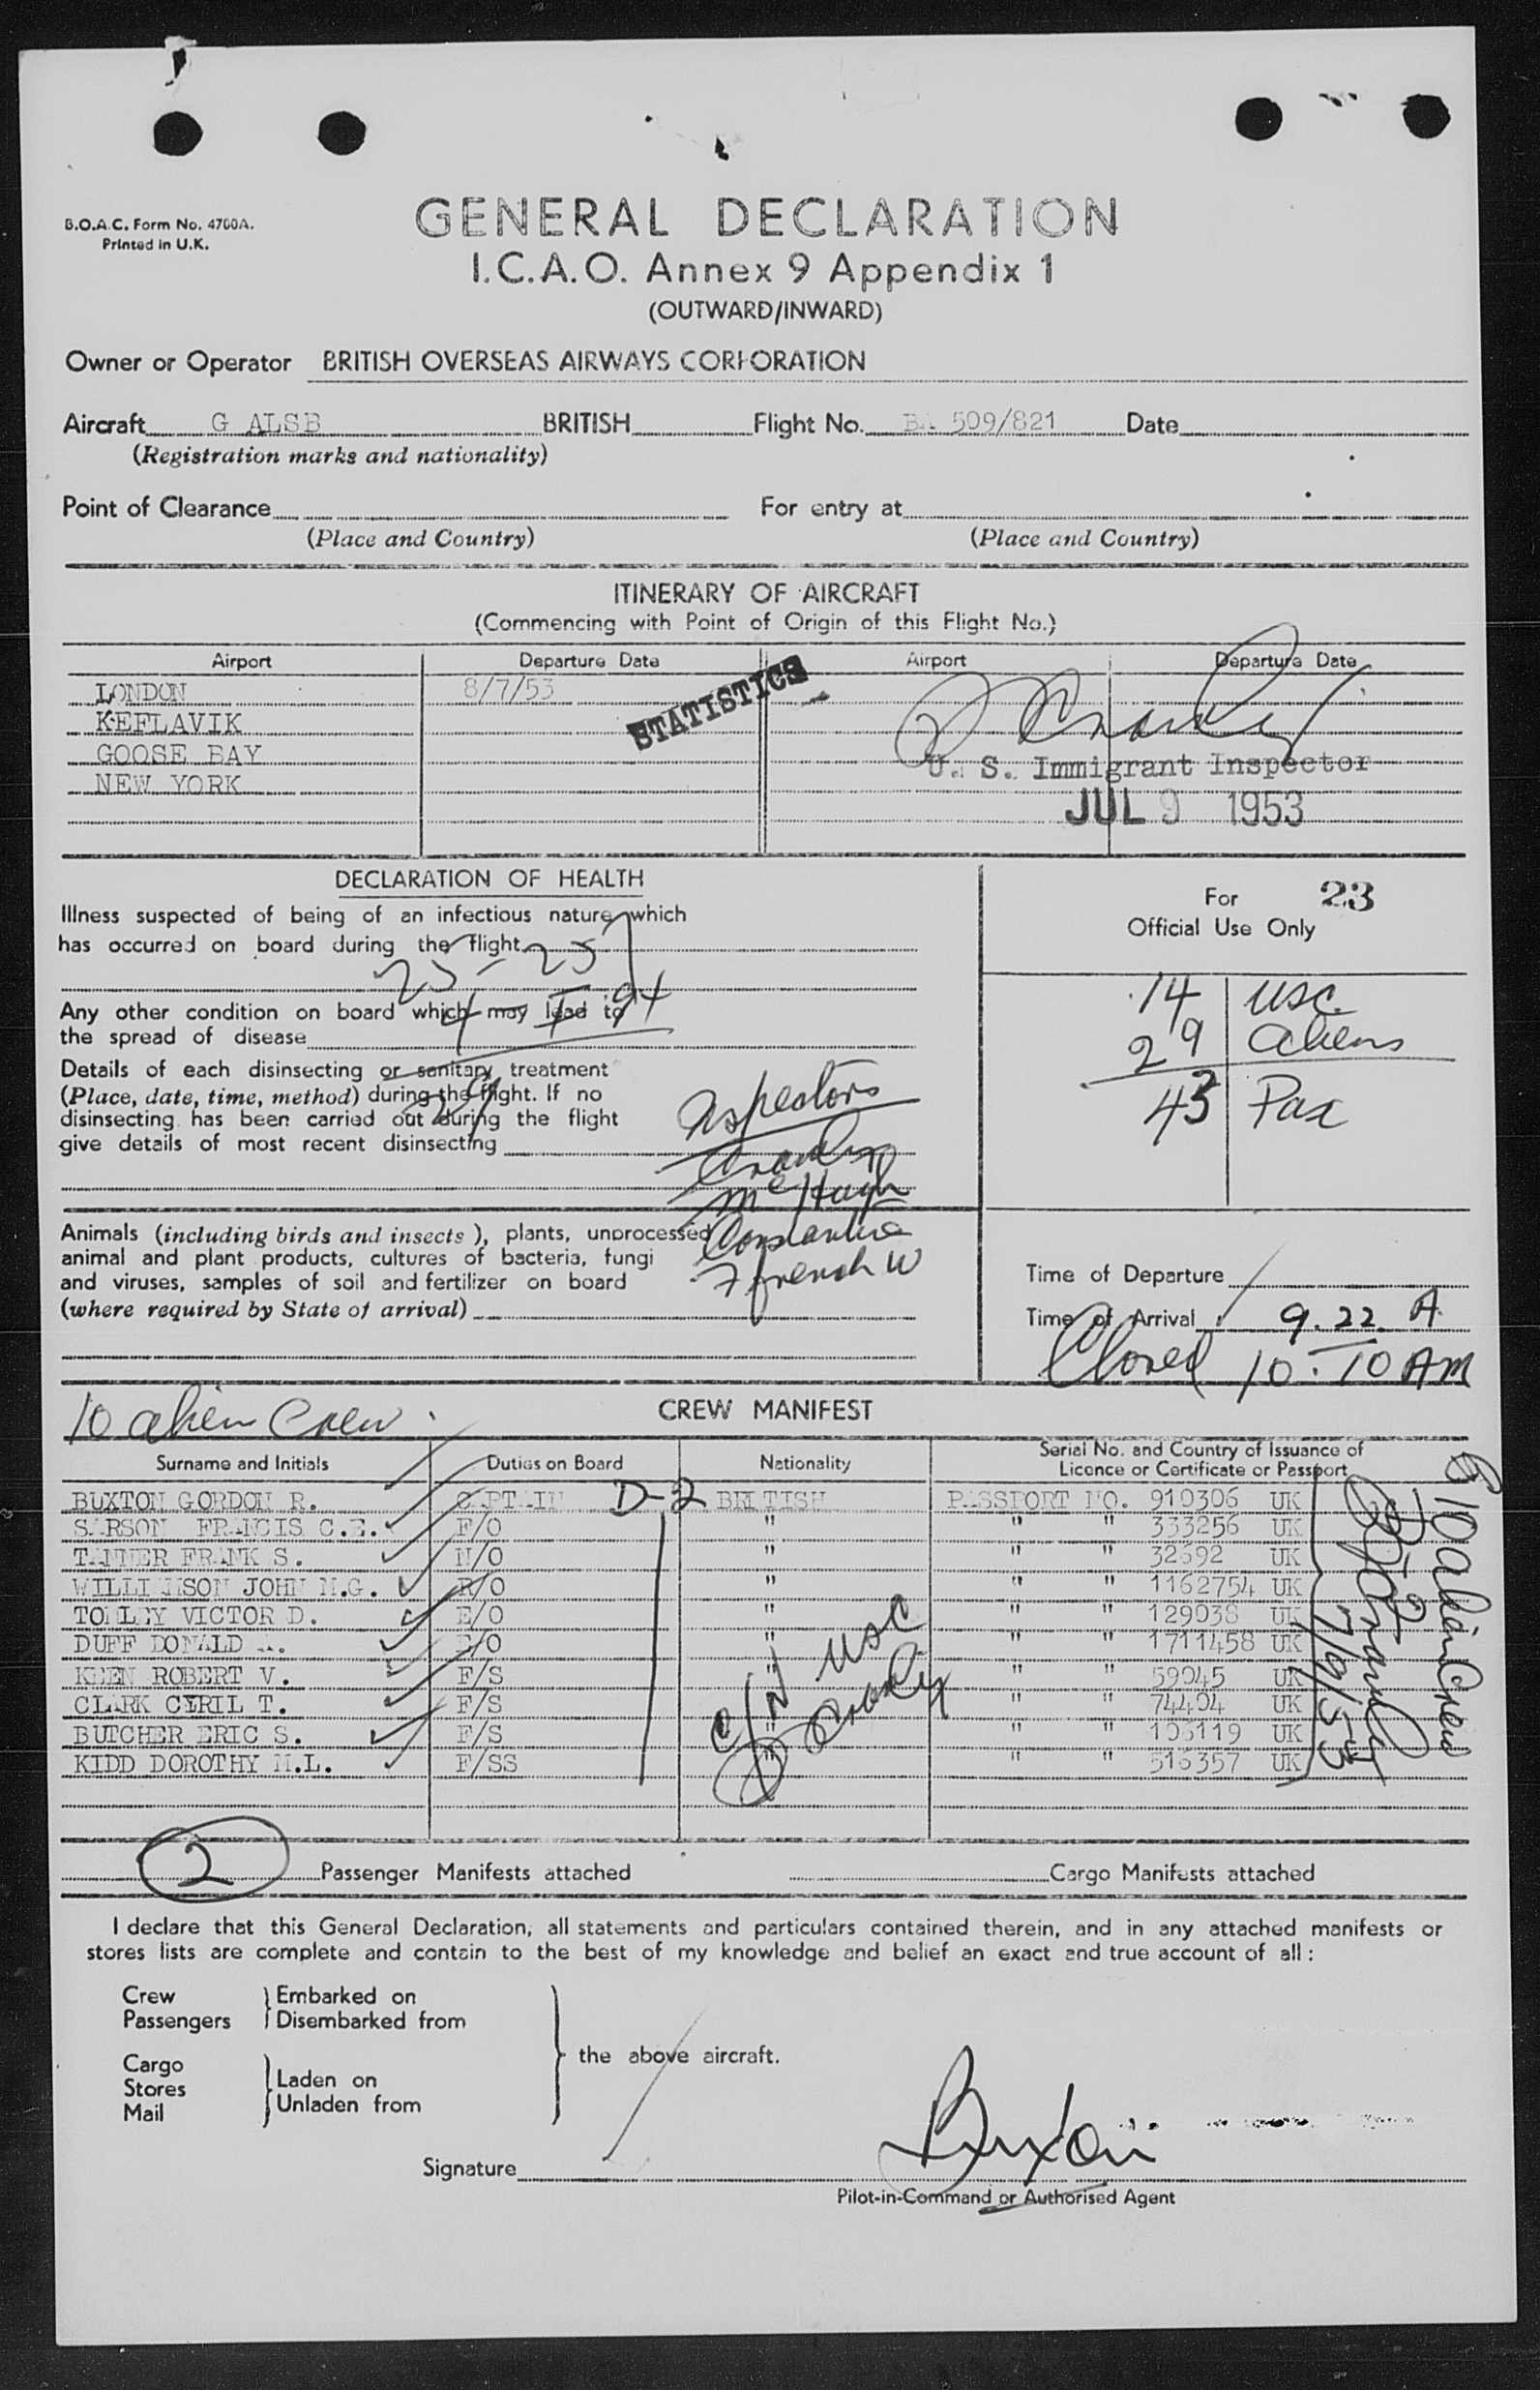 B.O.A.C. Form No. 4700A.
Printed in U.K.
GENERAL DECLARATION
I.C.A.O. Annex 9 Appendix 1
(OUTWARD/INWARD)
Owner or Operator BRITISH OVERSEAS AIRWAYS CORPORATION
Aircraft G ALSB BRITISH Flight No. BA 509/821 Date
(Registration marks and nationality)
Point of Clearance For entry at
(Place and Country) (Place and Country)
ITINERARY OF AIRCRAFT
(Commencing with Point of Origin of this Flight No.)
Airport Departure Date Airport Departure Date
LONDON 8/7/53
STATISTICS
KEFLAVIK
GOOSE BAY
NEW YORK
U. S. Immigrant Inspector
JUL 9 1953
DECLARATION OF HEALTH
Illness suspected of being of an infectious nature which
has occurred on board during the flight
25 - 25
Any other condition on board which may lead to
the spread of disease
Details of each disinsecting or sanitary treatment
(Place, date, time, method) during the flight. If no
disinsecting has been carried out during the flight
give details of most recent disinsecting
29
Inspectors
McHugh
French W
Animals (including birds and insects), plants, unprocessed
animal and plant products, cultures of bacteria, fungi
and viruses, samples of soil and fertilizer on board
(where required by State of arrival)
For 23
Official Use Only
14 USC
29 aliens
43 Pax
Time of Departure
Time of Arrival 9.22 A
Closed 10:10 AM
10 alien Crew
CREW MANIFEST
Surname and Initials Duties on Board Nationality Serial No. and Country of Issuance of
Licence or Certificate or Passport
BUXTON GORDON R. CAPTAIN D-2 BRITISH PASSPORT NO. 910306 UK
SARSON FRANCIS C.E. F/O " " " 333256 UK
TANNER FRANK S. N/O " " " 32692 UK
WILLIAMSON JOHN M.G. R/O " " " 1162754 UK
TOMLEY VICTOR D. E/O " " " 129038 UK
DUFF DONALD A. " " " 1711458 UK
KEEN ROBERT V. F/S " " " 59045 UK
CLARK CYRIL T. F/S " " " 74404 UK
BUTCHER ERIC S. F/S " " " 106119 UK
KIDD DOROTHY M.L. F/SS " " " 516357 UK
C/N USC
10 alien Crew
D-2
7/9/53
2 Passenger Manifests attached Cargo Manifests attached
I declare that this General Declaration, all statements and particulars contained therein, and in any attached manifests or
stores lists are complete and contain to the best of my knowledge and belief an exact and true account of all :
Crew Embarked on
Passengers Disembarked from
the above aircraft.
Cargo
Stores Laden on
Mail Unladen from
Signature Buxton
Pilot-in-Command or Authorised Agent